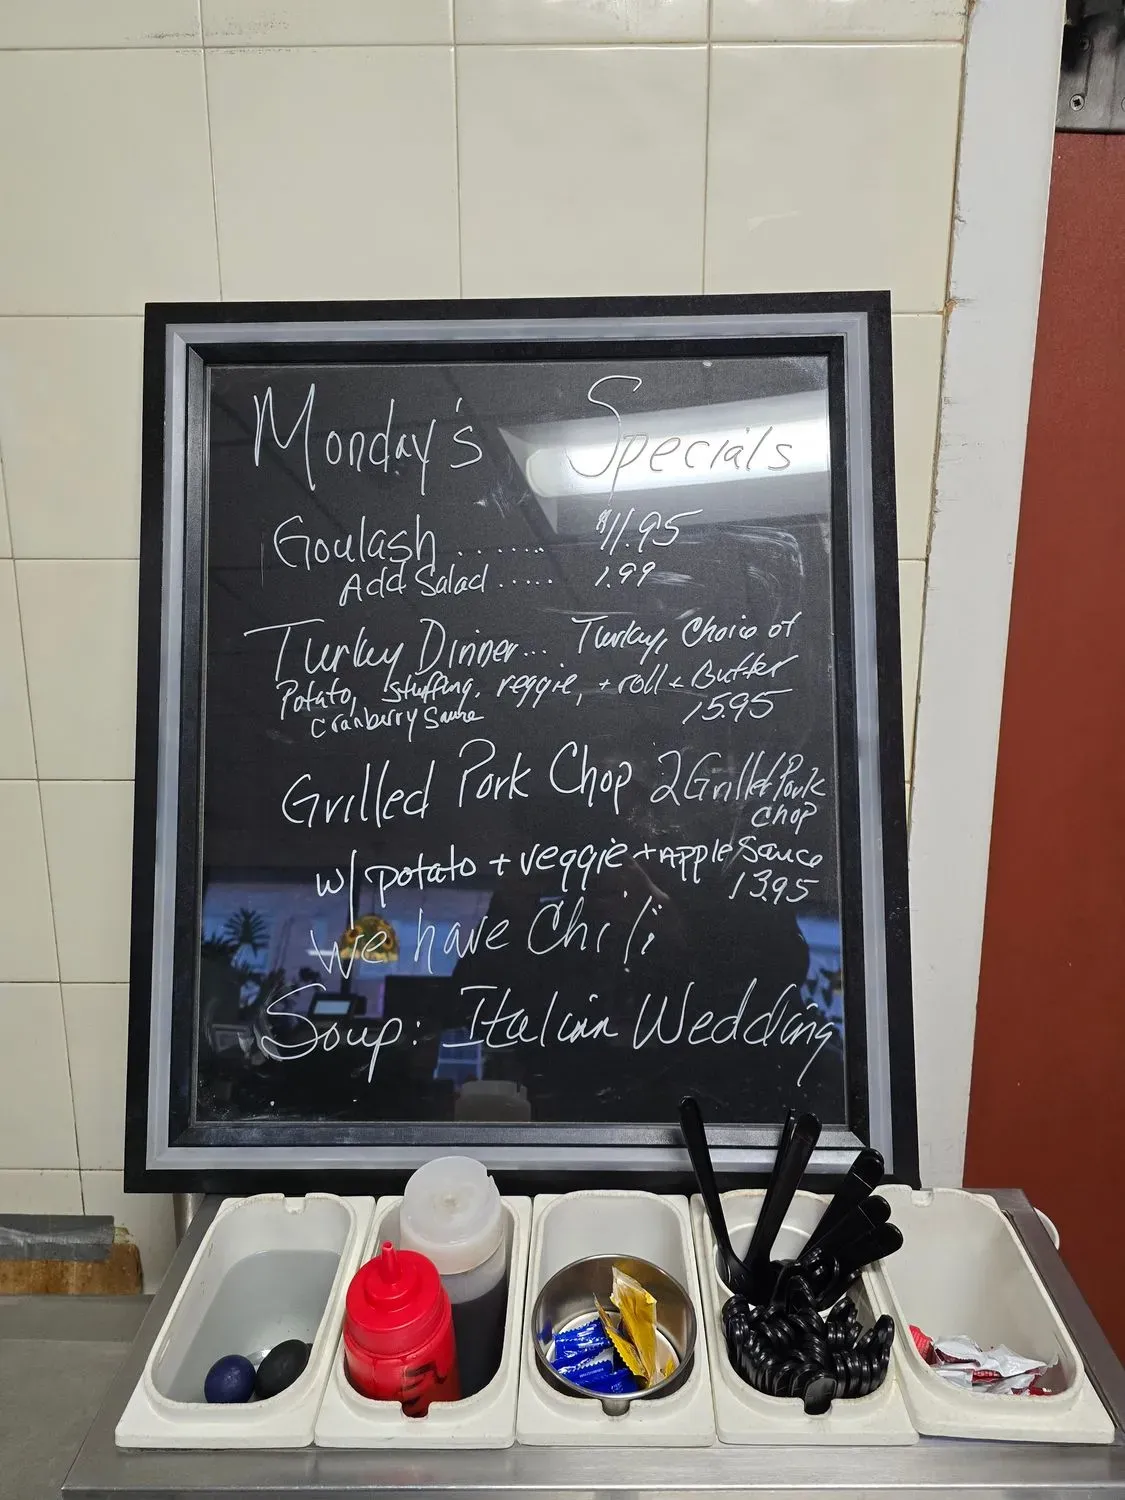 Monday's Specials
Goulash ...... $11.95
Add Salad ..... 1.99
Turkey Dinner... Turkey, Choice of
Potato, stuffing, veggie, + roll + Butter
Cranberry Sauce 15.95
Grilled Pork Chop 2 Grilled Pork
chop
w/ potato + veggie + Apple Sauce
13.95
We have Chili
Soup: Italian Wedding